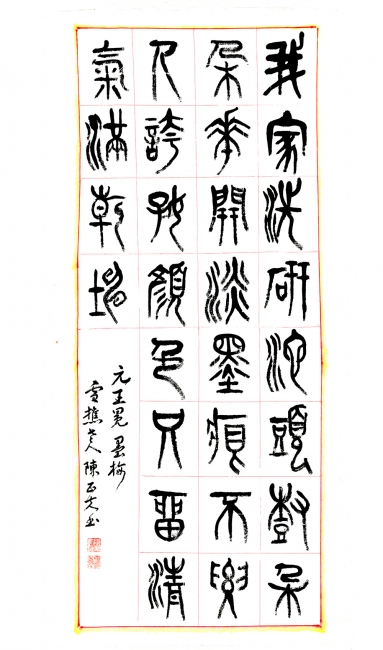 我家洗研池頭樹朵
朵華開淡墨痕不要
人誇好顏色只留清
氣滿乾坤
元王冕墨梅
雪樵老人陳正文书